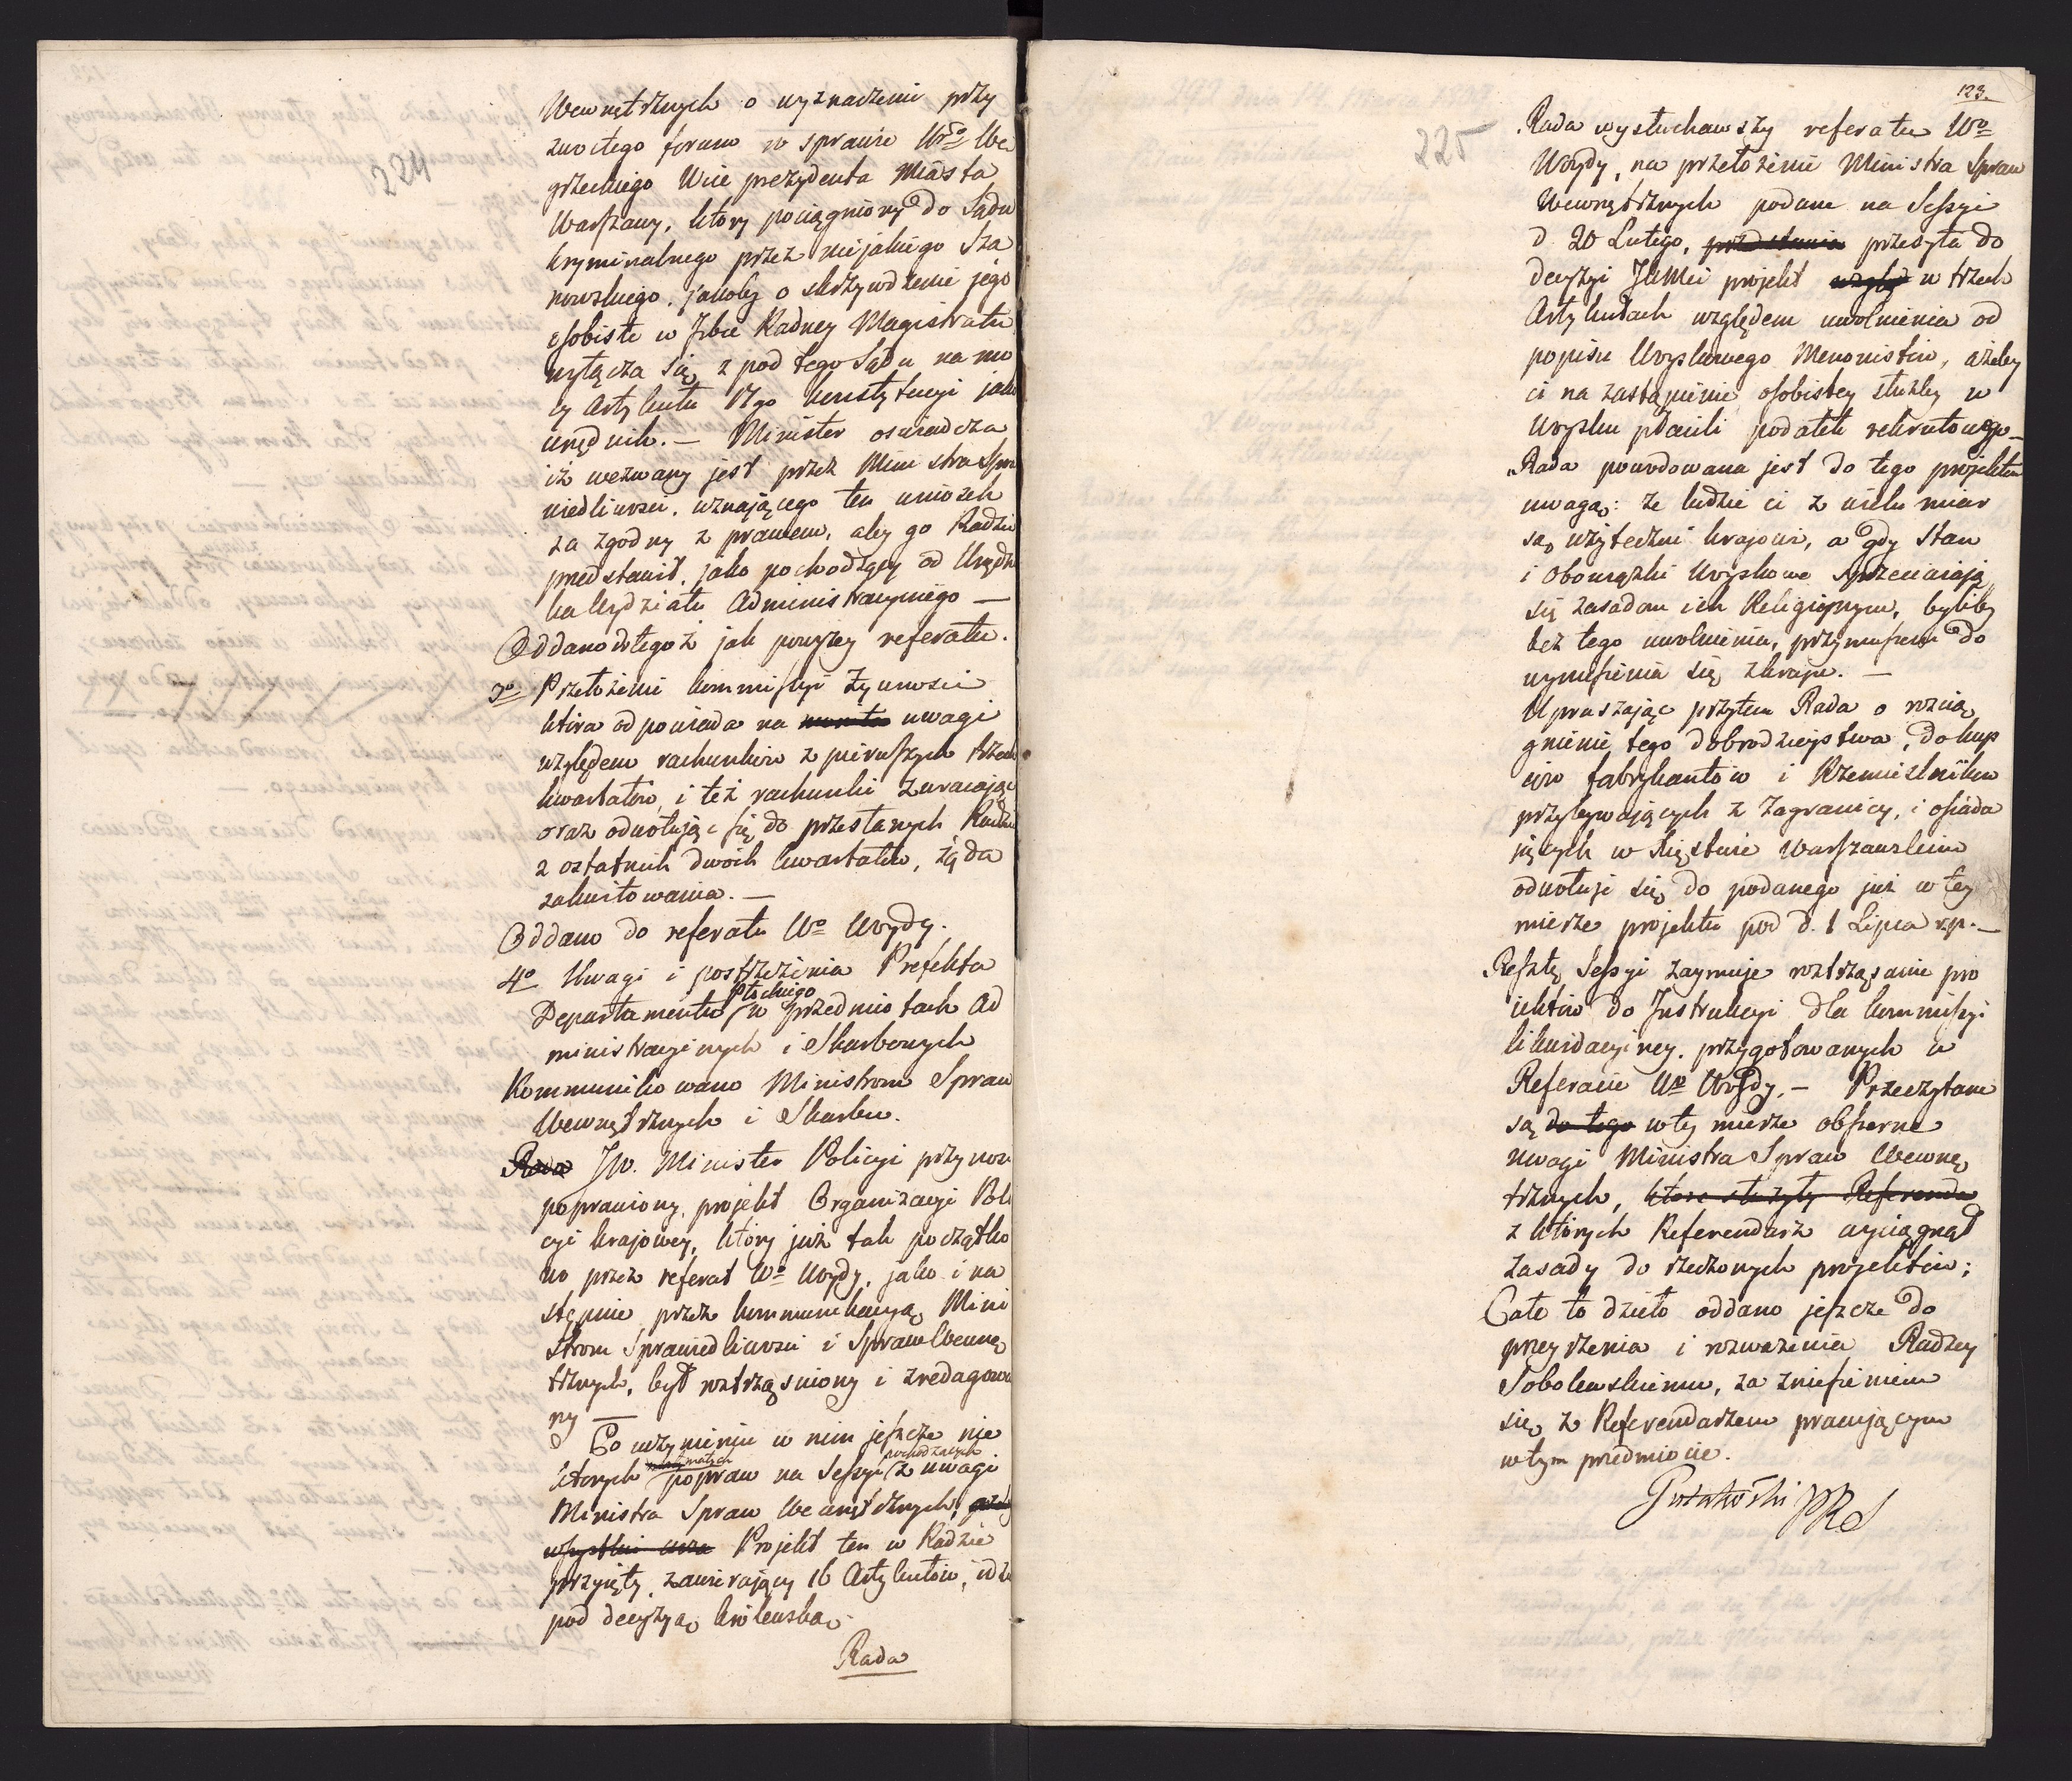 224
Wewnętrznych o wyznaczenie przy
zwoitego forum w sprawie Wgo We
grzeckiego Wice prezydenta Miasta
Warszawy, ktory pociągniony do Sądu
kryminalnego przez niejakiego Sza
nowskiego, jakoby o skrzywdzenie jego
osobiste w Izbie Radney Magistratu
wyłącza się z pod tego Sądu na mo
cy Artykułu 17go konstytucyi jako
urzędnik. — Minister oswiadcza
iż wezwany jest przez Ministra Spra
wiedliwosci, uznającego ten wniosek
za zgodny z prawem, aby go Radzie
przedstawił, jako pochodzący od Urzędni
ka Wydziału Administracyinego —
Oddano do tegoż jak powyżey referatu.
3o Przełożenie kommissyi Żywnosci
ktora odpowiada na uwagi
względem rachunków z pierwszych trzech
kwartałów, i też rachunki zwracając
oraz odwołując się do przesłanych Rachu
z ostatnich dwóch kwartałów, żąda
zakwitowania. —
Oddano do referatu Wo Woydy.
4o Uwagi i postrzeżenia Prefekta
Departamentu Płockiego w przedmiotach Ad
ministracyinych i Skarbowych
Kommunikowano Ministrom Spraw
Wewnętrznych i Skarbu.
Rada JW. Minister Policyi przynosi
poprawiony projekt Organizacyi Poli
cyi kraiowey, który już tak początko
wo przez referat Wo Woydy, jako i na
stępnie przez kommunikacyą Mini
strom Sprawiedliwosci i Spraw Wewnę
trznych, był roztrząsniony i zredagowa
ny —
Po uczynieniu w nim jeszcze nie
ktorych popraw na Sessyi pochodzących z uwagi
Ministra Spraw Wewnętrznych,
wszystkie Projekt ten w Radzie
przyięty, zawieraiący 16 Artykułów, idzie
pod decyzyą królewską.
Rada
123.
225
Rada wysłuchawszy referatu Wo
Woydy, na przełożenie Ministra Spraw
Wewnętrznych podane na Sessyi
d. 20 Lutego, przedstawia przesyła do
decyzyi JKMci projekt wzglę w trzech
Artykułach względem uwolnienia od
popisu Woyskowego Menonistów, ażeby
ci na zastąpienie osobistey służby w
woysku płacili podatek rekrutowego —
Rada powodowana jest do tego projektu
uwagą: że ludzie ci z wielu miar
są użyteczni kraiowi, a gdy stan
i obowiązki Woyskowe sprzeciwiają
się zasadom ich Religiynym, byliby
bez tego uwolnienia, przymuszeni do
wyniesienia się z kraju. —
Upraszając przytem Rada o rozcią
gnienie tego dobrodzieystwa, do kup
ców fabrykantów i Rzemieslników
przybywających z Zagranicy, i osiada
jących w Xięstwie Warszawskim
odwołuje się do podanego już w tey
mierze projektu pod d. 1 Lipca r.p. —
Resztę Sessyi zaymuje roztrząsanie pro
jektów do Instrukcyi dla kommissyi
likwidacyiney, przygotowanych w
Referacie Wo Woydy. — Przeczytane
są do tego w tey mierze obszerne
uwagi Ministra Spraw Wewnę
trznych, które służyły Referenda
z których Referendarz wyciągnął
zasady do rzeczonych projektów;
Całe to dzieło oddano jeszcze do
przeyrzenia i rozważenia Radzcy
Sobolewskiemu, za zniesieniem
się z Referendarzem pracującym
w tym przedmiocie.
Potocki PRS